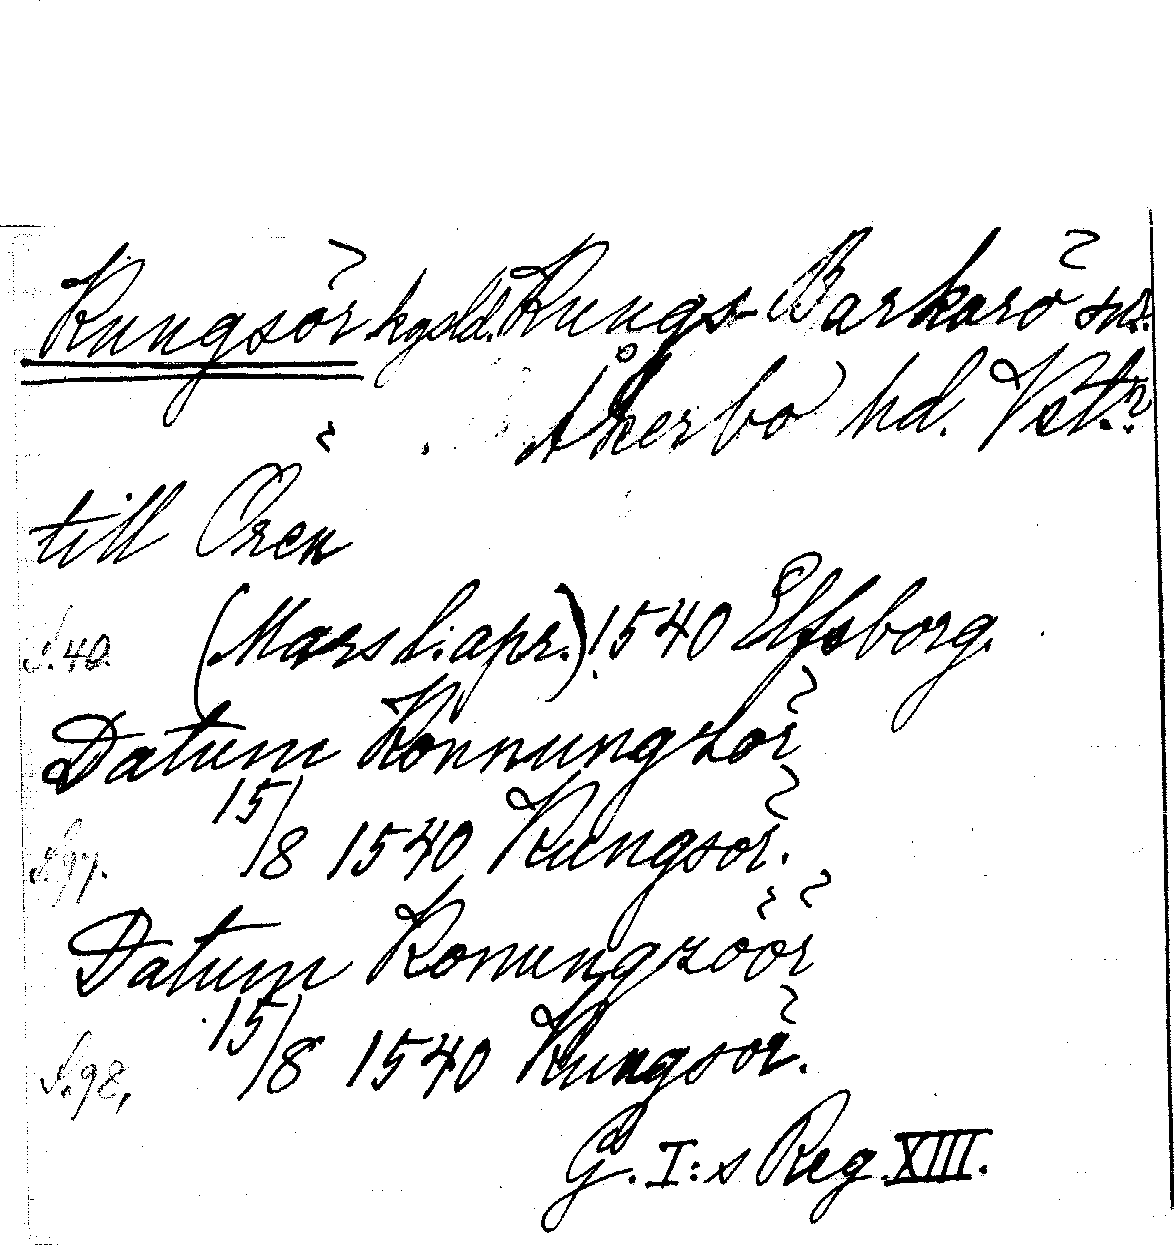 Kungsör kgsld. Kungs-Barkarö sn.
Åkerbo hd. Vstm.
till Ören
S. 40. (Mars l. apr.) 1540 Elfsborg.
Datum Konnungzör
S. 97. 15/8 1540 Kungsör.
Datum Konungzöör
S. 98, 15/8 1540 Kungsör.
G. I:s Reg. XIII.